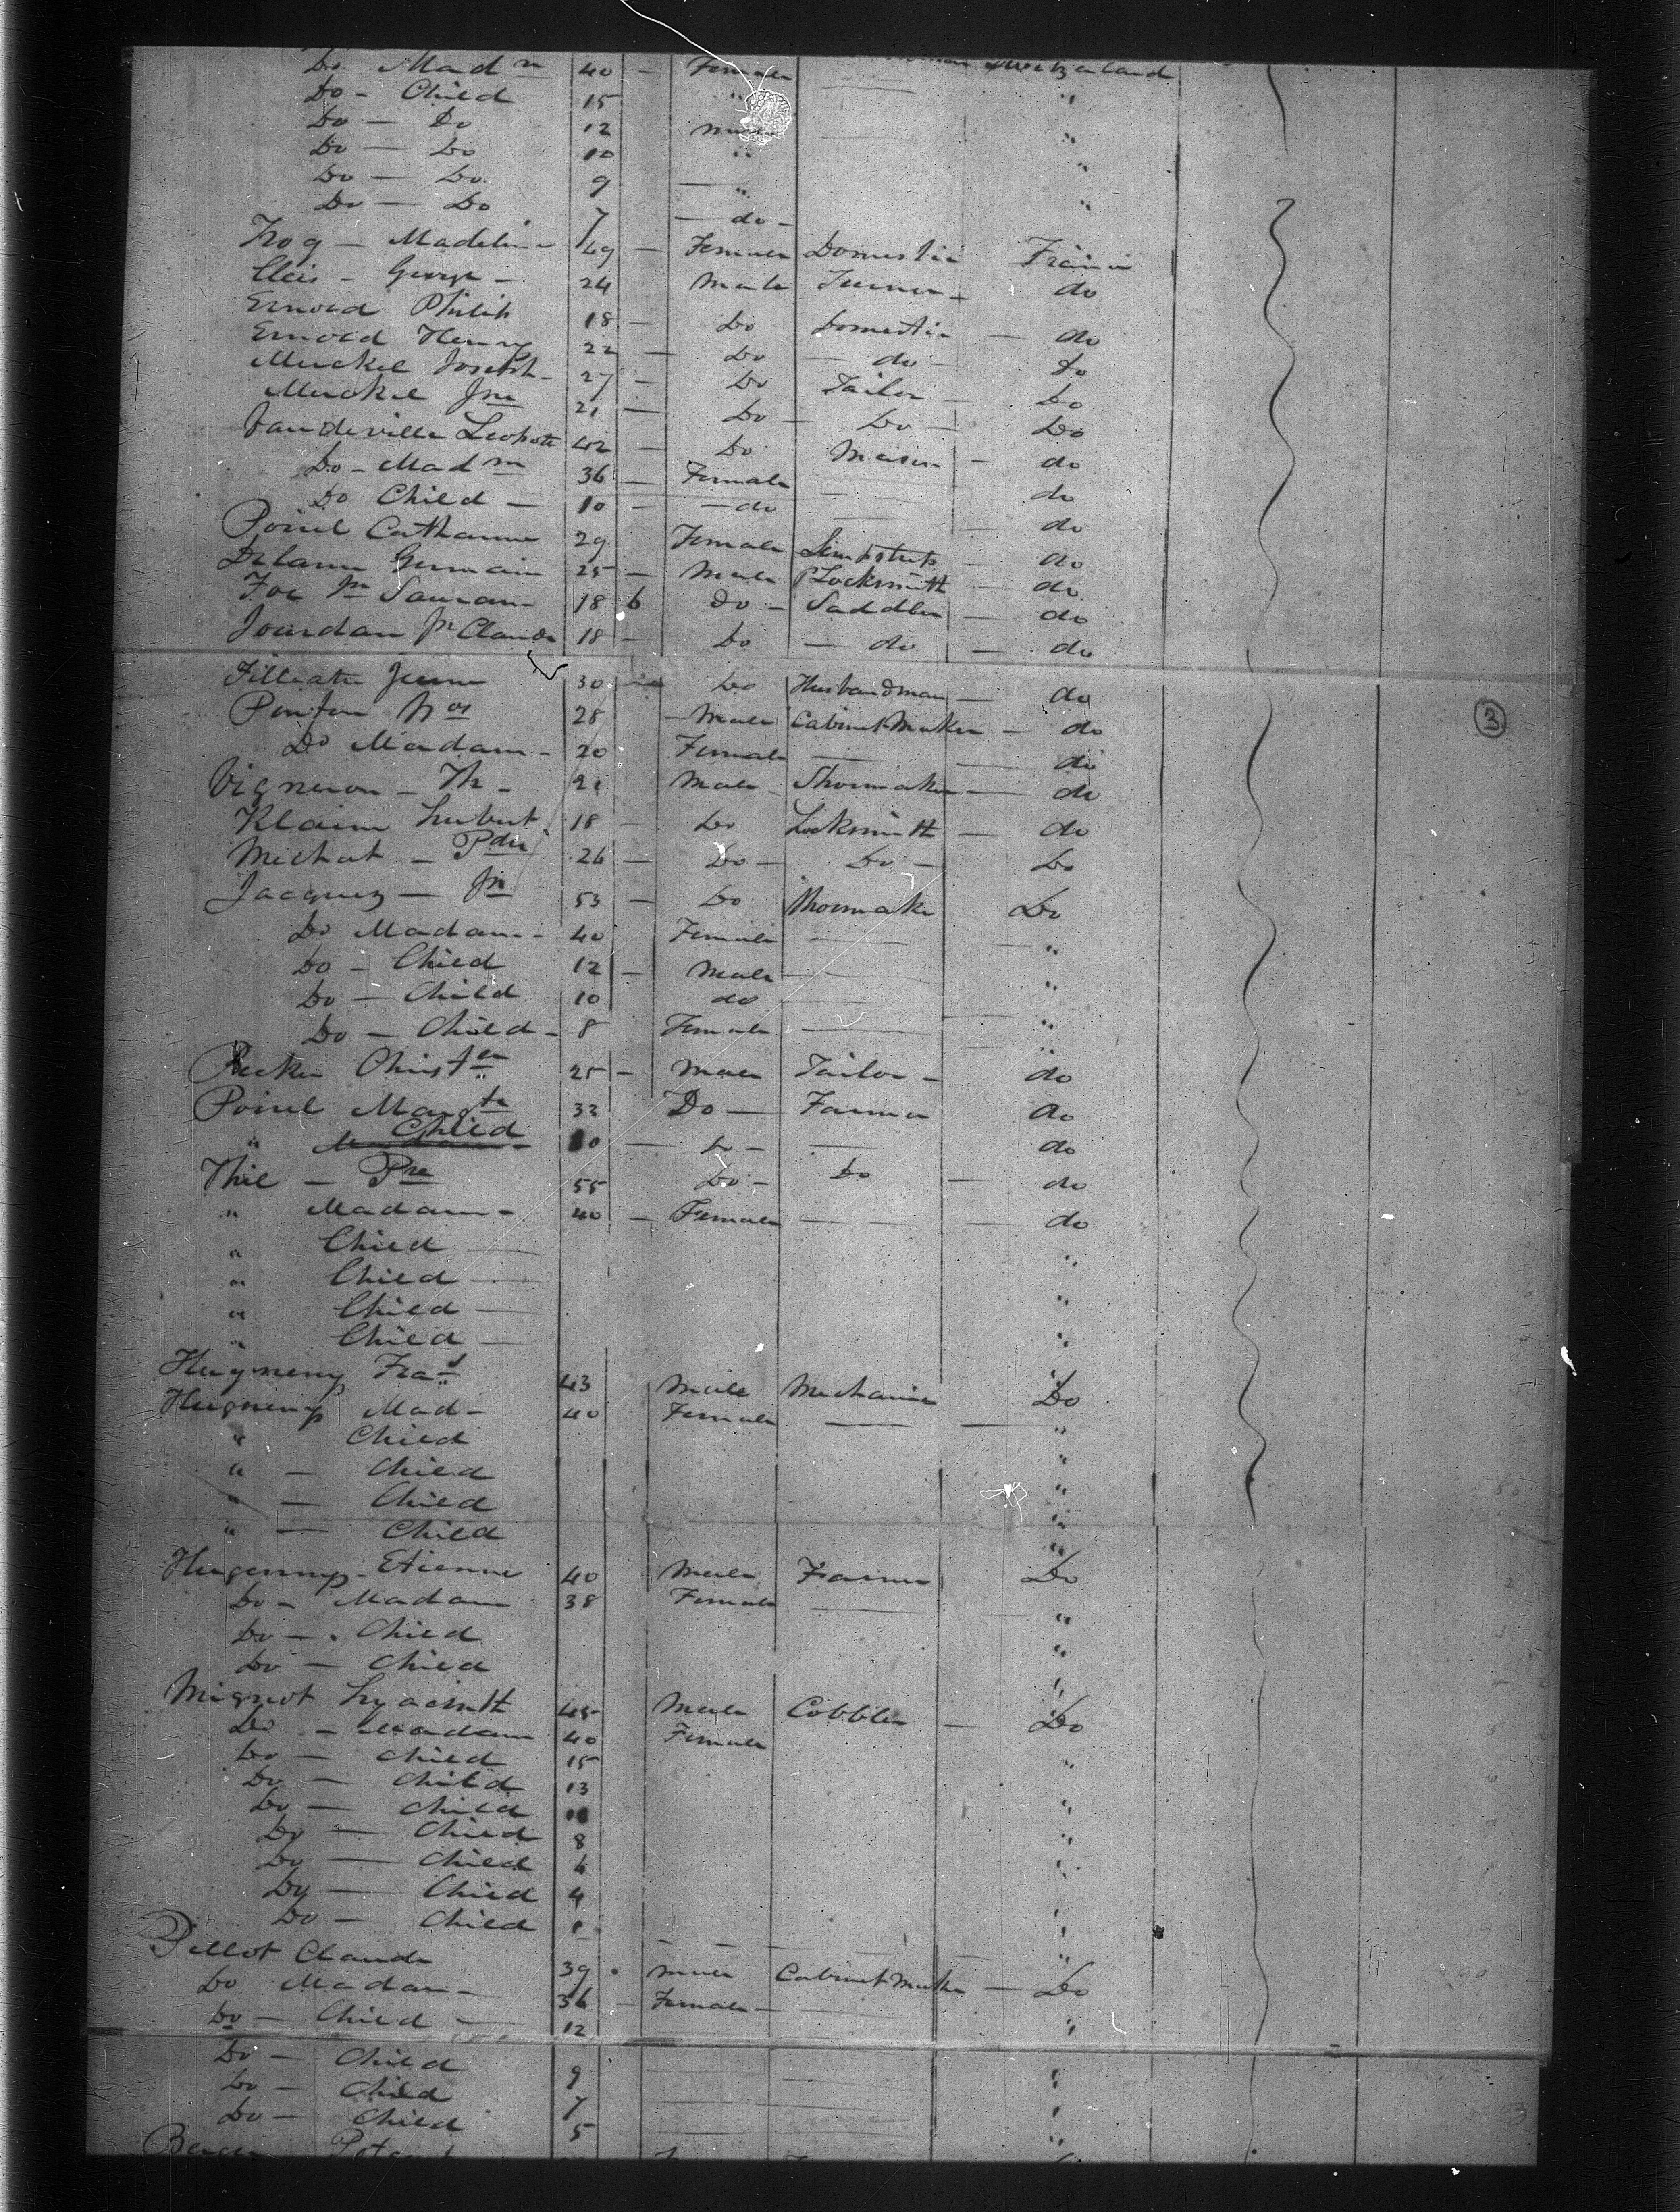 Do Mad m 40 — Female Switzerland
Do - Child 15 " "
Do — Do 12 Male "
Do — Do 10 " "
Do — Do 9 — " "
Do — Do 7 — do -
Trog — Madelin 49 — Female Domestic France
Cleis - George - 24 Male Turner do
Ernold Philip 18 — Do Domestic — do
Ernold Henry 22 — Do — do - do
Muckel Joseph - 27 — Do Tailor — Do
Muckel Jne 21 — Do — Do — Do
Vaudeville Leopold 42 — Do Mason — do
Do - Mad m 36 — Female do
Do Child — 10 - — do do
Poirel Catharine 29 Female Sempstress do
Germain 25 — Male Locksmith — do
18 6 Do - Saddler — do
Jourdan Jn Claude 18 — Do — do — do
30 — Do Husbandman — do
28 Male Cabinet Maker — do
Do Madam - 20 Female — do
Vigneron - Th - 21 Male Shoemaker — do
Klaine Hubert 18 — Do Locksmith — do
Michat — 26 — Do — Do — Do
Jacquez — Jn 53 — Do Shoemaker Do
Do Madam - 40 Female — "
Do - Child 12 — Male — "
Do - Child 10 do — "
Do - Child - 8 Female — "
Becker Christen 25 — Male Tailor - do
Poirel Margte 33 Do — Farmer do
" Child 10 — Do - — do
Thil — Pre 55 Do - Do — do
" Madam - 40 — Female — do
" Child — "
" Child — "
" Child — "
" Child — "
Hugneny Fras 43 Male Mechanic Do
Hugneny Mad - 40 Female — "
" Child "
" — Child "
" — Child "
" — Child "
Hugenny - Etienne 40 Male Farmer Do
Do - Madam 38 Female — "
Do — Child "
Do — Child "
Mignot Hyacinth 45 Male Cobbler — Do
Do - Madam 40 Female
Do — Child 15 "
Do — Child 13
Do — Child "
Do — Child 8 "
Do — Child 6 "
Do — Child 4
Do — Child "
Pellot Claude 39 Male Cabinet Maker — Do
Do Madam - 36 — Female —
Do - Child — 12 "
Do — Child 9 "
Do — Child 7 "
Do — Child 5 "
3